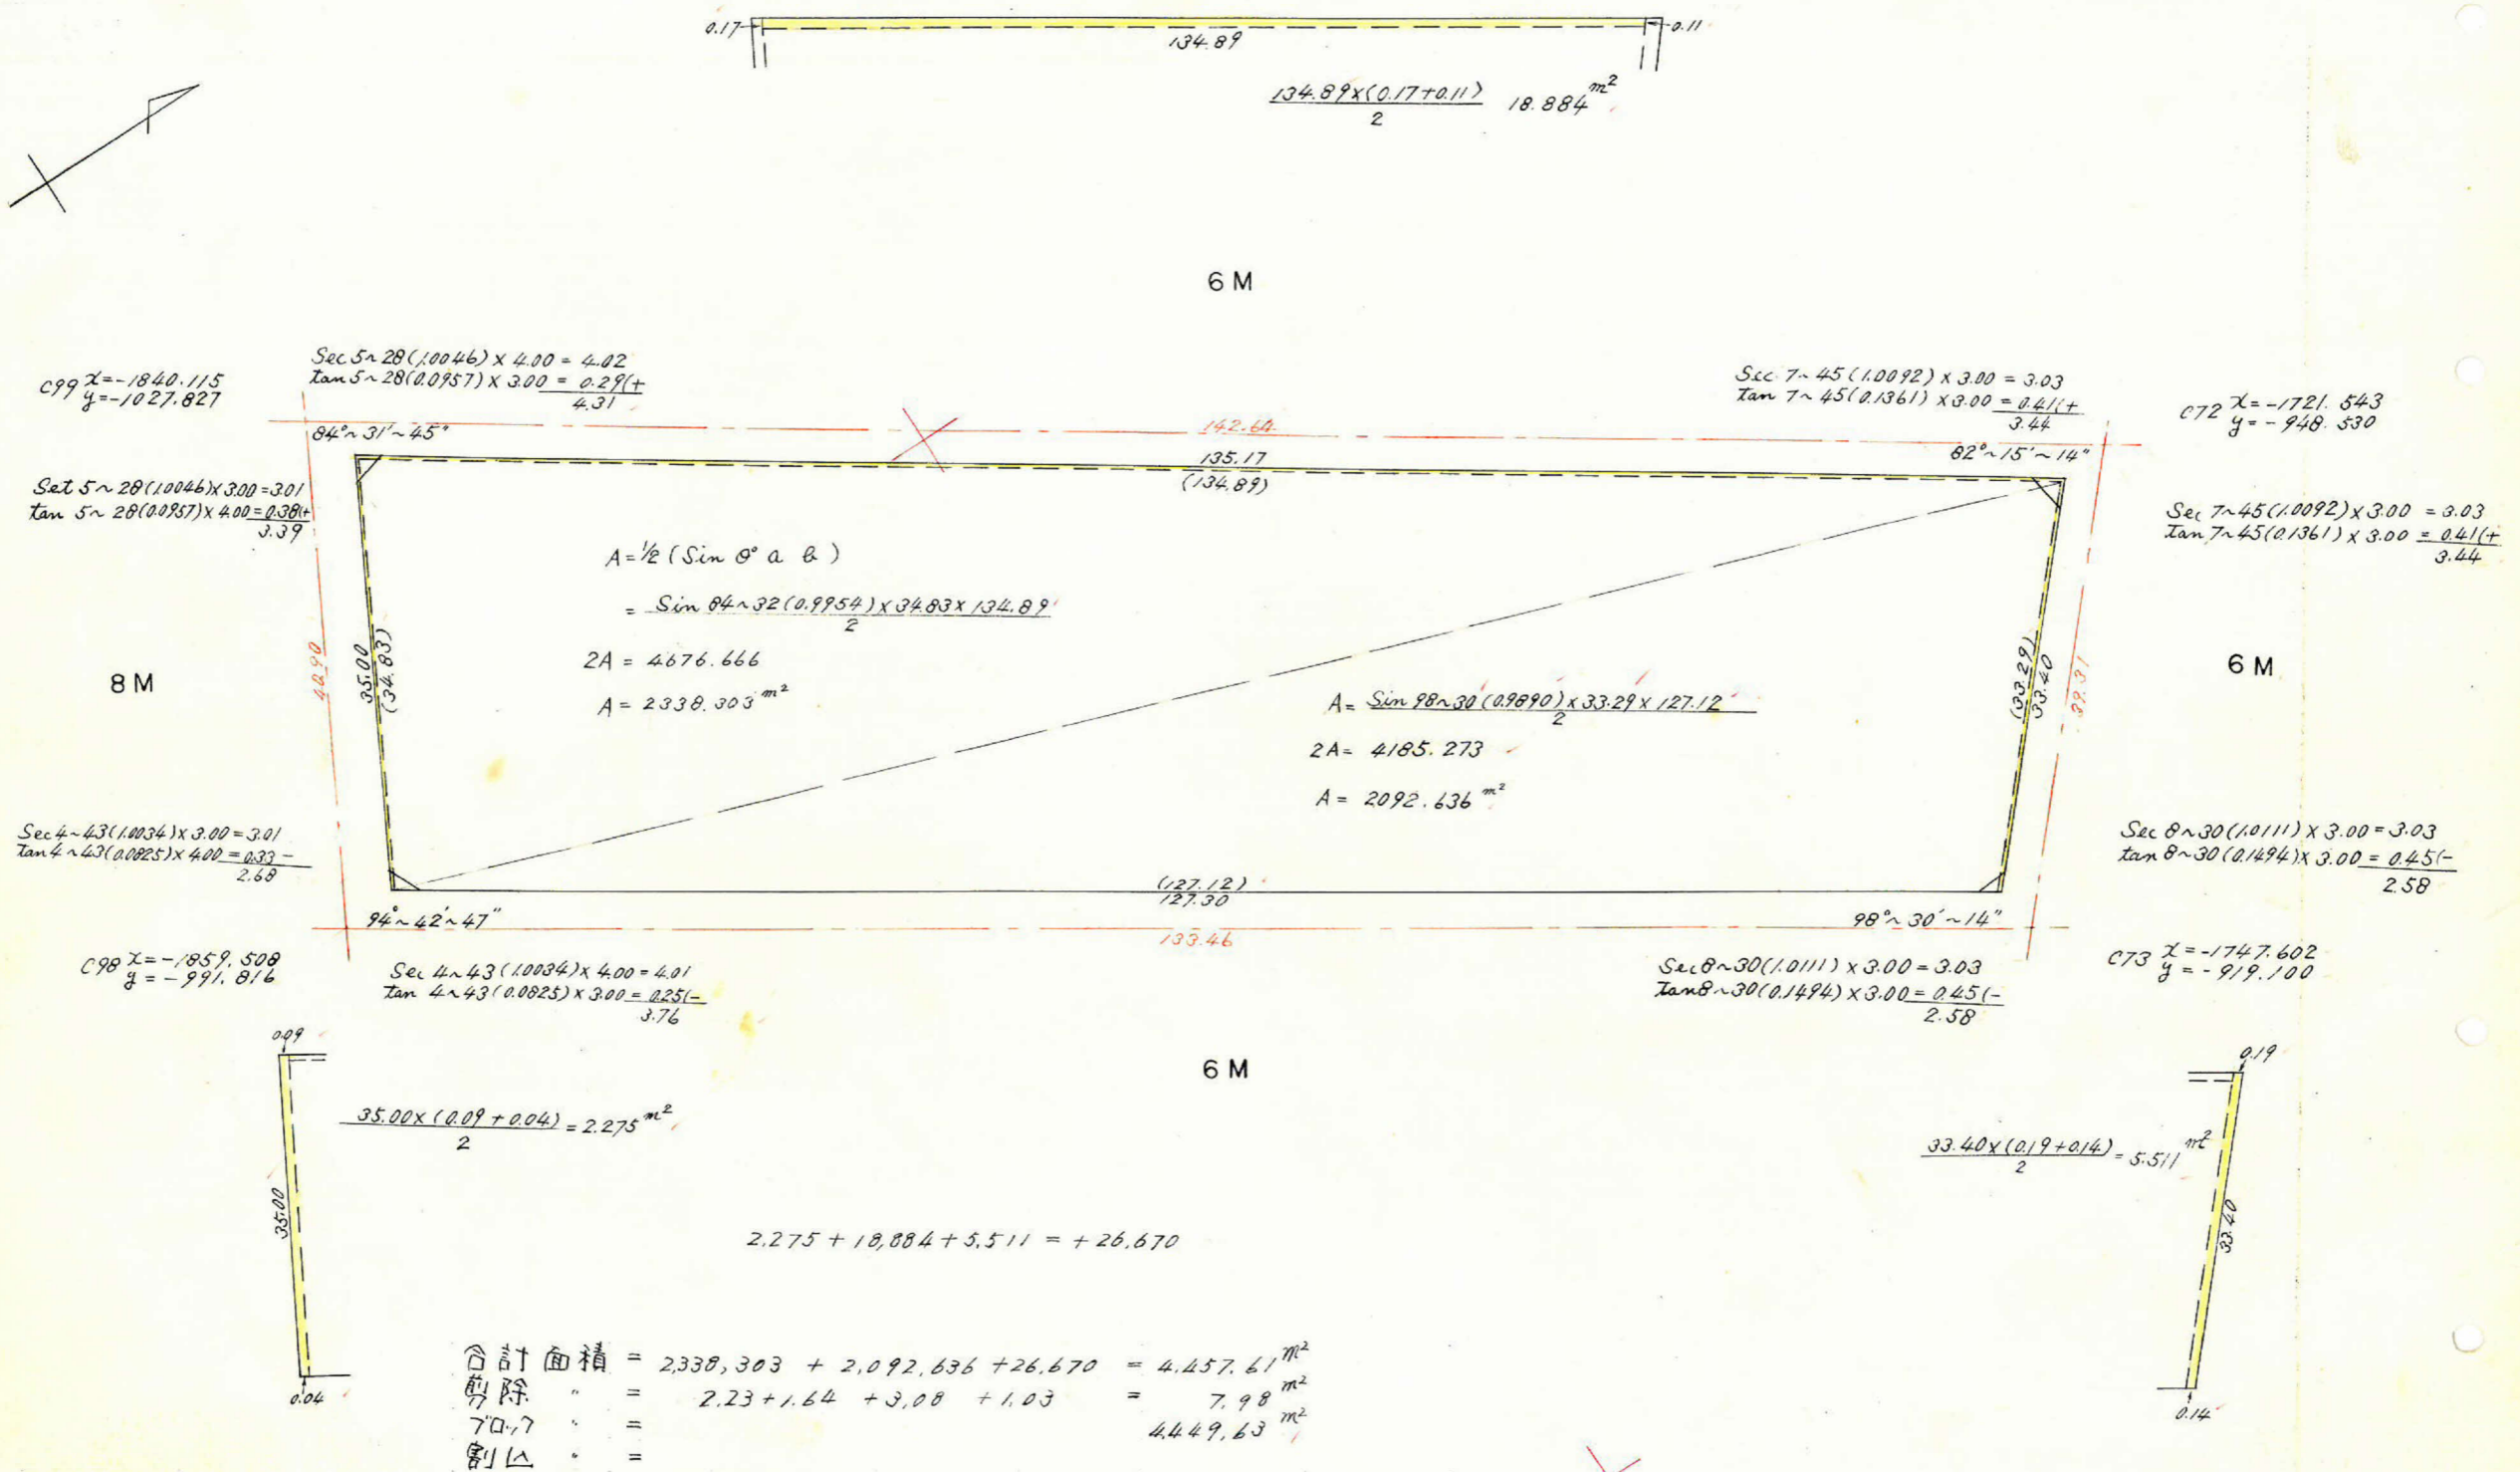 0.17
0.11
134.89
134.89×(0.17+0.11)
2
18.884 m²
6 M
Sec 5~28(1.0046) × 4.00 = 4.02
tan 5~28(0.0957) × 3.00 = 0.29(+
4.31
C99 x=-1840.115
y=-1027.827
Sec 7~45(1.0092) × 3.00 = 3.03
tan 7~45(0.1361) × 3.00 = 0.41(+
3.44
C72 x=-1721.543
y=-948.530
84°~31'~45"
142.64
82°~15'~14"
135.17
(134.89)
Set 5~28(1.0046)×3.00=3.01
tan 5~28(0.0957)×4.00=0.38(+
3.39
Sec 7~45(1.0092)×3.00 = 3.03
tan 7~45(0.1361)×3.00 = 0.41(+
3.44
A=½(Sin θ° a b)
= Sin 84~32(0.9954)×34.83×134.89
2
2A = 4676.666
A = 2338.303 m²
8 M
40.90
35.00
(34.83)
A= Sin 98~30(0.9890)×33.29×127.12
2
2A= 4185.273
A= 2092.636 m²
(33.29)
33.40
39.31
6 M
Sec 4~43(1.0034)×3.00=3.01
tan 4~43(0.0825)×4.00=0.33-
2.68
Sec 8~30(1.0111)×3.00=3.03
tan 8~30(0.1494)×3.00=0.45(-
2.58
(127.12)
127.30
94°~42'~47"
98°~30'~14"
133.46
C98 x=-1859.508
y=-991.816
Sec 4~43(1.0034)×4.00=4.01
tan 4~43(0.0825)×3.00=0.25(-
3.76
Sec 8~30(1.0111)×3.00=3.03
Tan 8~30(0.1494)×3.00=0.45(-
2.58
C73 x=-1747.602
y=-919.100
0.09
6 M
0.19
35.00×(0.09+0.04) = 2.275 m²
2
33.40×(0.19+0.14) = 5.511 m²
2
35.00
33.40
2.275+18,884+5,511=+26,670
0.04
0.14
合計面積 = 2,338,303 + 2,092,636 + 26,670 = 4,457.61 m²
剪除 〃 = 2.23+1.64+3.08+1.03 = 7.98 m²
ブロック 〃 = 4449.63 m²
割込 〃 =